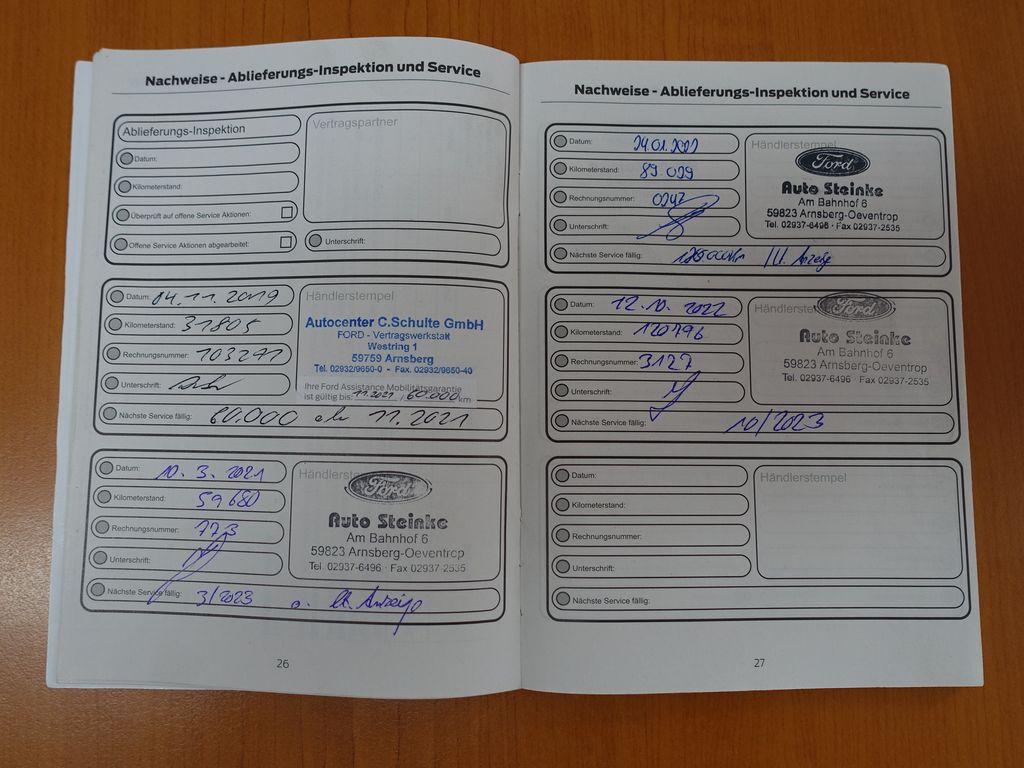 Nachweise - Ablieferungs-Inspektion und Service
Ablieferungs-Inspektion
Vertragspartner
Datum:
Kilometerstand:
Überprüft auf offene Service Aktionen:
Offene Service Aktionen abgearbeitet:
Unterschrift:
Datum: 04.11.2019
Kilometerstand: 31805
Rechnungsnummer: 103291
Unterschrift:
Händlerstempel
Autocenter C.Schulte GmbH
FORD - Vertragswerkstatt
Westring 1
59759 Arnsberg
Tel. 02932/9650-0 - Fax. 02932/9650-40
Ihre Ford Assistance Mobilitätsgarantie
ist gültig bis: 11.2021 / 60.000 km
Nächste Service fällig: 60.000 11.2021
Datum: 10.3.2021
Kilometerstand: 59680
Rechnungsnummer: 773
Unterschrift:
Händlerstempel
Ford
Auto Steinke
Am Bahnhof 6
59823 Arnsberg-Oeventrop
Tel. 02937-6496 · Fax 02937-2535
Nächste Service fällig: 3/2023 o. lt. Anzeige
26
Nachweise - Ablieferungs-Inspektion und Service
Datum: 24.01.2022
Kilometerstand: 89.029
Rechnungsnummer: 0242
Unterschrift:
Händlerstempel
Ford
Auto Steinke
Am Bahnhof 6
59823 Arnsberg-Oeventrop
Tel. 02937-6496 · Fax 02937-2535
Nächste Service fällig: Anzeige
Datum: 12.10.2022
Kilometerstand: 120796
Rechnungsnummer: 3127
Unterschrift:
Händlerstempel
Ford
Auto Steinke
Am Bahnhof 6
59823 Arnsberg-Oeventrop
Tel. 02937-6496 · Fax 02937-2535
Nächste Service fällig: 10/2023
Datum:
Kilometerstand:
Rechnungsnummer:
Unterschrift:
Händlerstempel
Nächste Service fällig:
27